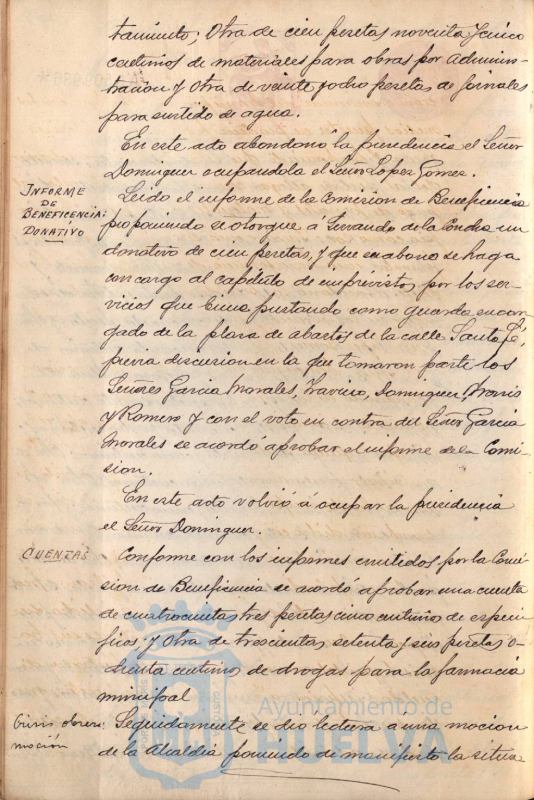 tamiento; Otra de cien pesetas noventa y cinco
centimos de materiales para obras por Adminis-
tracion y Otra de veinte y ocho pesetas de jornales
para surtido de agua.
En este acto abandonó la presidencia el Señor
Dominguez ocupandola el Señor Lopez Gomez.
INFORME
DE
BENEFICENCIA:
DONATIVO
Leido el informe de la Comision de Beneficencia
proponiendo se otorgue a Servando de la Concha un
donativo de cien pesetas, y que su abono se haga
con cargo al capítulo de imprevistos por los ser-
vicios que viene prestando como guarda encar-
gado de la plaza de abastos de la calle Santa Fé,
previa discusion en la que tomaron parte los
Señores Garcia Morales, Travieso, Dominguez,
y Romero y con el voto en contra del Señor Garcia
Morales se acordó aprobar el informe de la Comi-
sion.
En este acto volvió á ocupar la presidencia
el Señor Dominguez.
CUENTAS
Conforme con los informes emitidos por la Comi-
sion de Beneficencia se acordó aprobar una cuenta
de cuatrocientas tres pesetas cinco centimos de especi-
ficos y Otra de trescientas setenta y seis pesetas o-
chenta centimos de drogas para la farmacia
municipal
Crisis obrera:
moción
Seguidamente se dio lectura a una mocion
de la Alcaldia poniendo de manifiesto la situa-
Ayuntamiento de
HUELVA